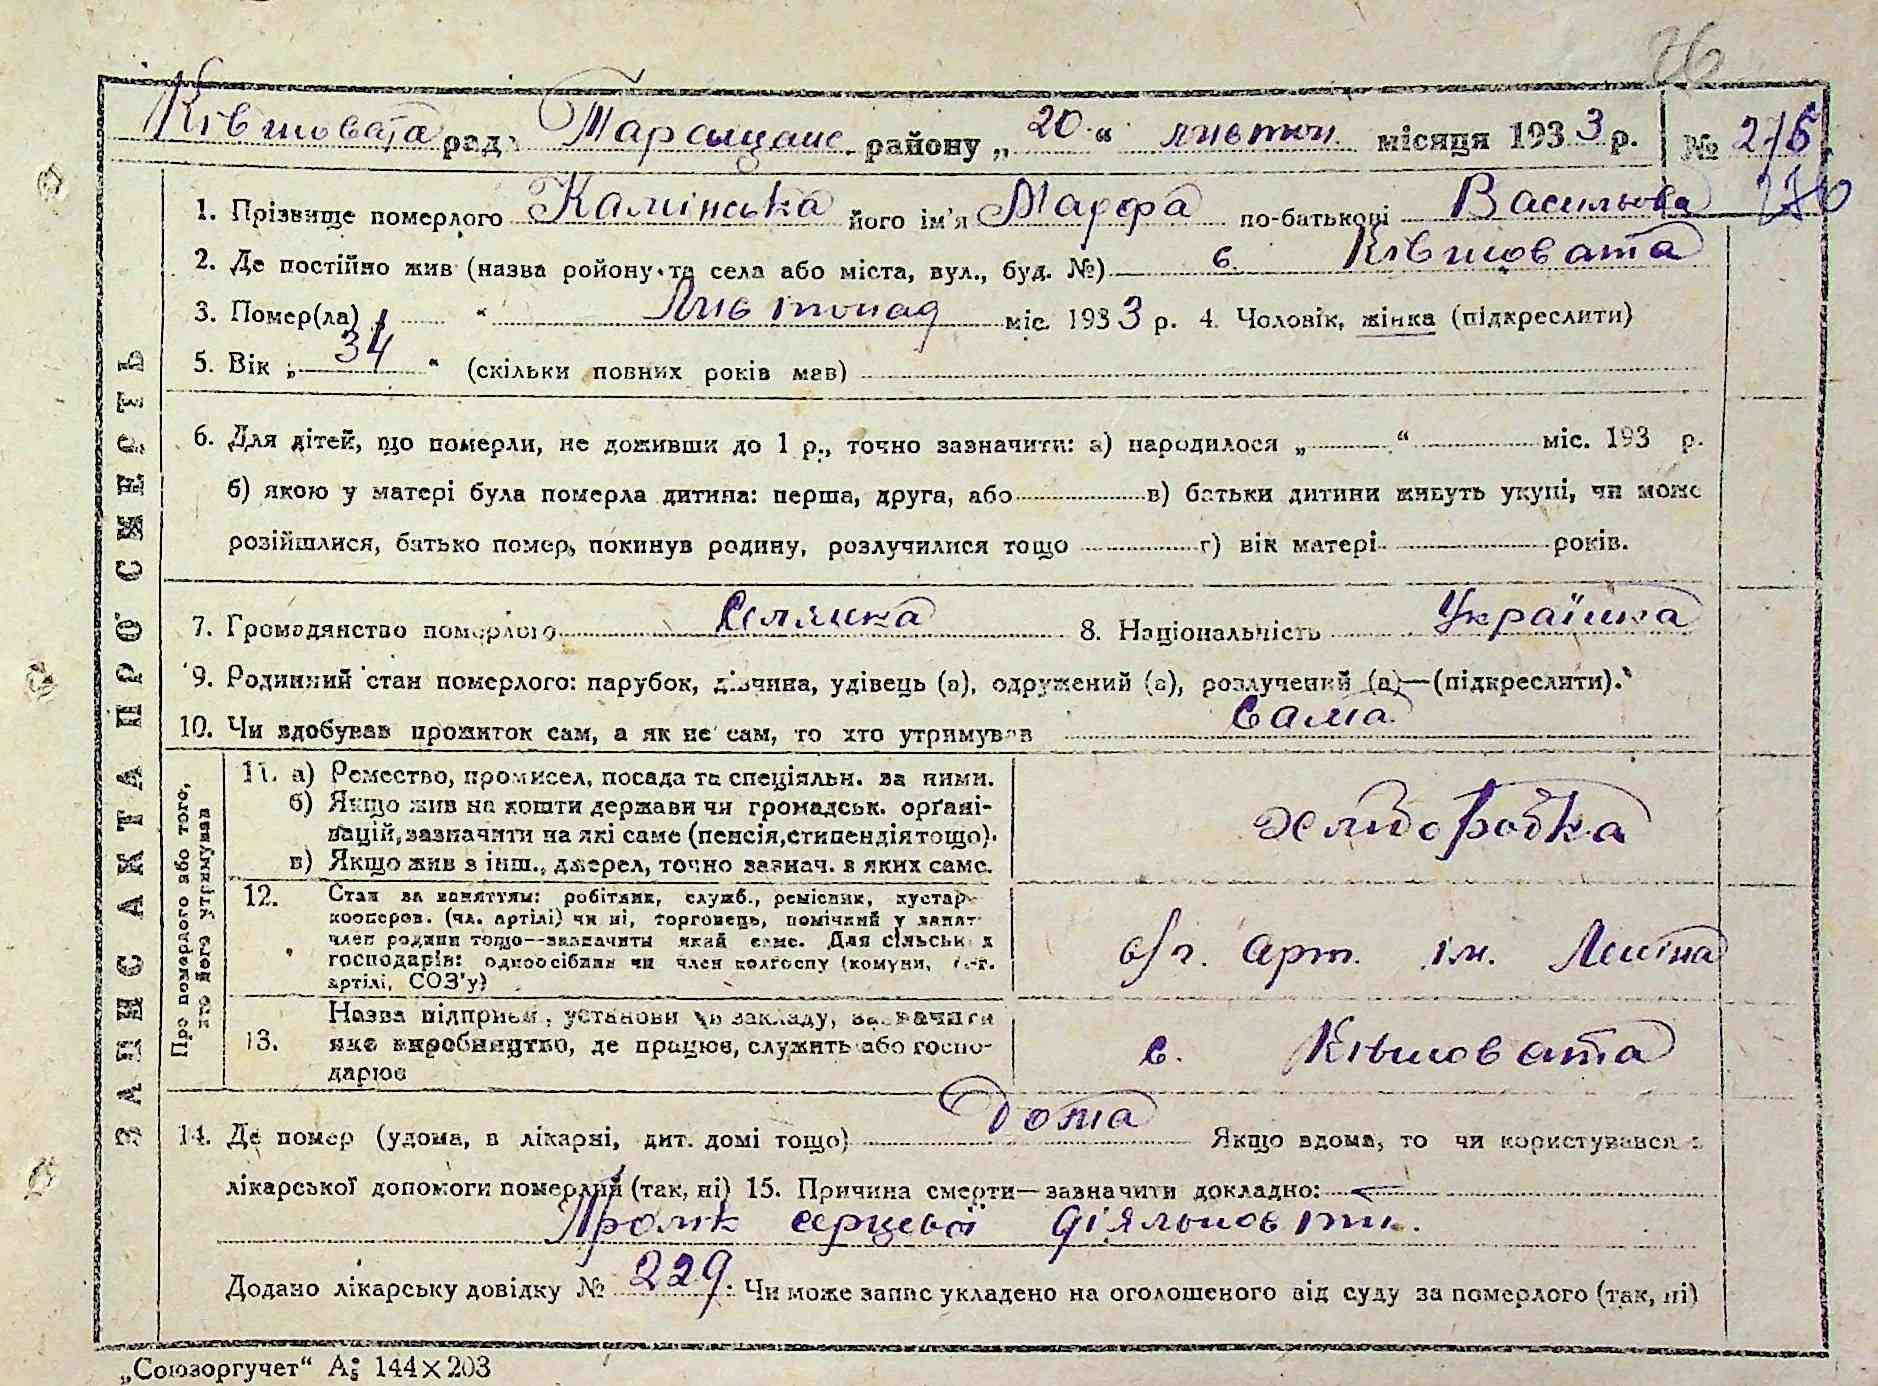 26
Ківшовата рада Таращанс. району „20“ листоп. місяця 1933 р. № 276
270
1. Прізвище померлого Калінська його ім'я Марфа по-батькові Васильова
2. Де постійно жив (назва ройону та села або міста, вул., буд. №) с. Ківшовата
3. Помер(ла) „ “ Листопад міс. 1933 р. 4. Чоловік, жінка (підкреслити)
5. Вік „ 34 “ (скільки повних років мав)
6. Для дітей, що померли, не доживши до 1 р., точно зазначити: а) народилося „ “ міс. 193 р.
б) якою у матері була померла дитина: перша, друга, або в) батьки дитини живуть укупі, чи може
розійшлися, батько помер, покинув родину, розлучилися тощо г) вік матері років.
7. Громадянство померлого Селянка 8. Національність Українка
9. Родинний стан померлого: парубок, дівчина, удівець (а), одружений (а), розлучений (а)—(підкреслити).
10. Чи здобував прожиток сам, а як не сам, то хто утримував Сама
ЗАПИС АКТА ПРО СМЕРТЬ
Про померлого або того,
хто його утримував
11. а) Ремество, промисел, посада та спеціяльн. за ними.
б) Якщо жив на кошти держави чи громадськ. орґані-
зацій, зазначити на які саме (пенсія, стипендія тощо).
в) Якщо жив з інш., джерел, точно зазнач. з яких саме.
хлиборобка
12. Стан за заняттям: робітник, служб., ремісник, кустар
кооперов. (чл. артілі) чи ні, торговець, помічний у занят
член родини тощо—зазначити який саме. Для сільськ х
господарів: одноосібник чи член колгоспу (комуни, с.-г.
артілі, СОЗ'у)
с/г. арт. ім. Леніна
13. Назва підприєм., установи чи закладу, зазначити
яке виробництво, де працює, служить або госпо-
дарює
с. Ківшовата
14. Де помер (удома, в лікарні, дит. домі тощо) Дома Якщо вдома, то чи користувався з
лікарської допомоги померлий (так, ні) 15. Причина смерти—зазначити докладно:
серцевої діяльности.
Додано лікарську довідку № 229. Чи може запис укладено на оголошеного від суду за померлого (так, ні)
„Союзоргучет“ А5 144×203